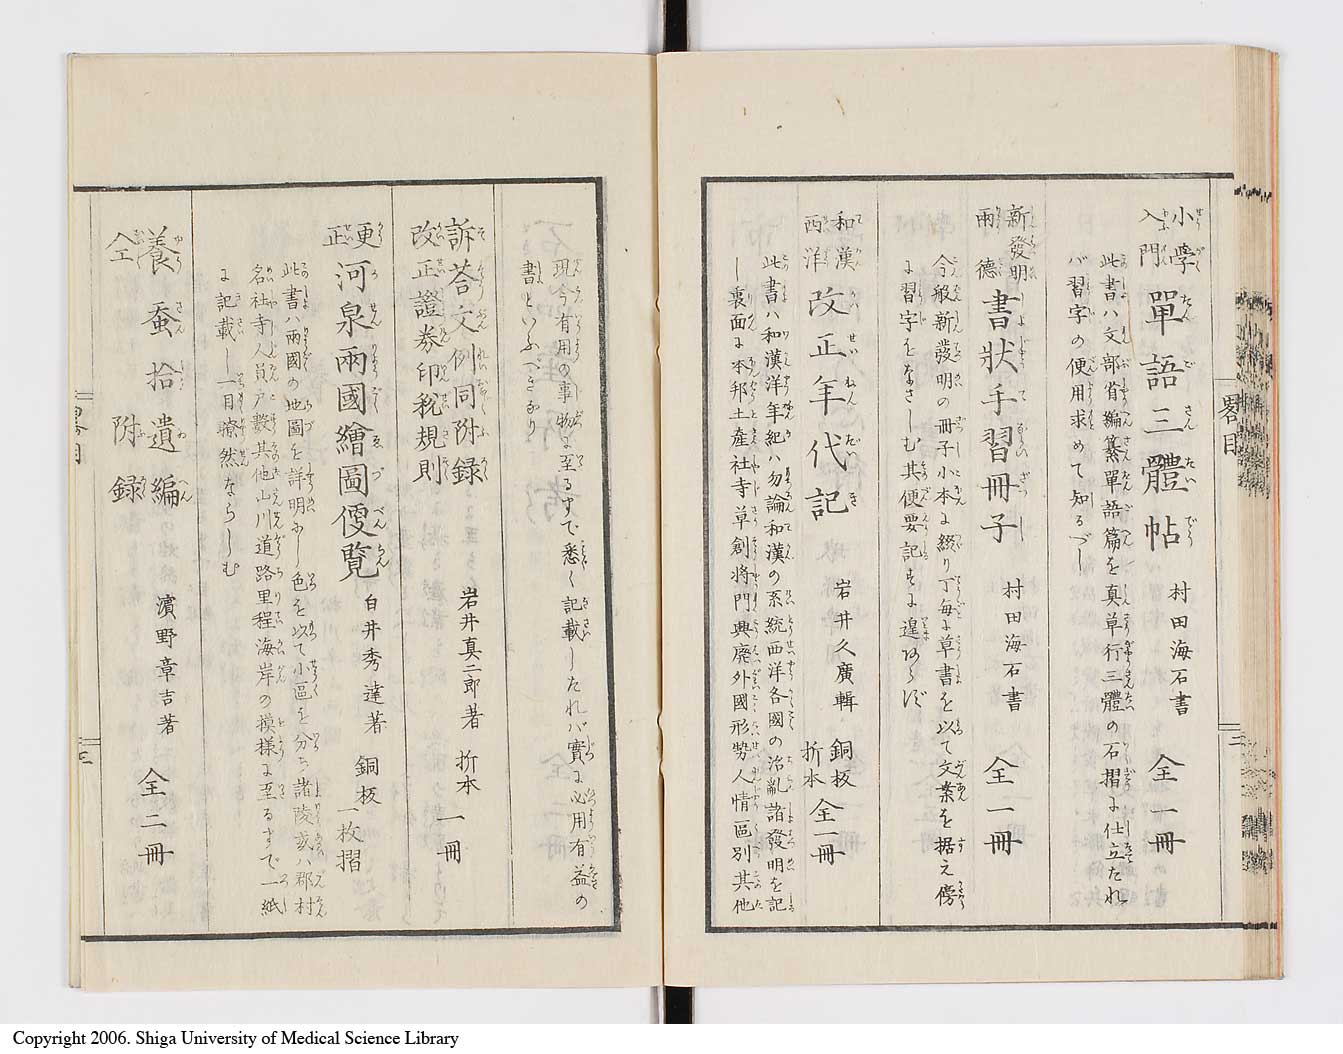 小學入門 單語三體帖 村田海石書 全一冊
此書ハ文部省編纂單語篇を真草行三體の石摺に仕立たれ
バ習字の便用求めて知るべし
新發明兩德 書狀手習冊子 村田海石書 全一冊
今般新發明の冊子小本に綴り丁每に草書を以て文案を据え傍
に習字をなさしむ其便要記すに遑あらず
和漢西洋 改正年代記 岩井久廣輯 銅板折本 全一冊
此書ハ和漢洋年紀ハ勿論和漢の系統西洋各國の治亂諸發明を記
し裏面に本邦土產社寺草創將門興廢外國形勢人情區別其他
畧目
三
現今有用の事物に至るまで悉く記載したれバ實に必用有益の
書といふべきなり
訴答文例同附錄
改正證券印稅規則 岩井真二郎著 折本 一冊
更正 河泉兩國繪圖便覧 白井秀達著 銅板一枚摺
此書ハ兩國の地圖を詳明にし色を以て小區を分ち諸陵或ハ郡村
名社寺人員戶數其他山川道路里程海岸の模樣に至るまで一紙
に記載し一目瞭然ならしむ
養蚕拾遺編
仝 附録 濱野章吉著 全二冊
畧目
三
Copyright 2006. Shiga University of Medical Science Library